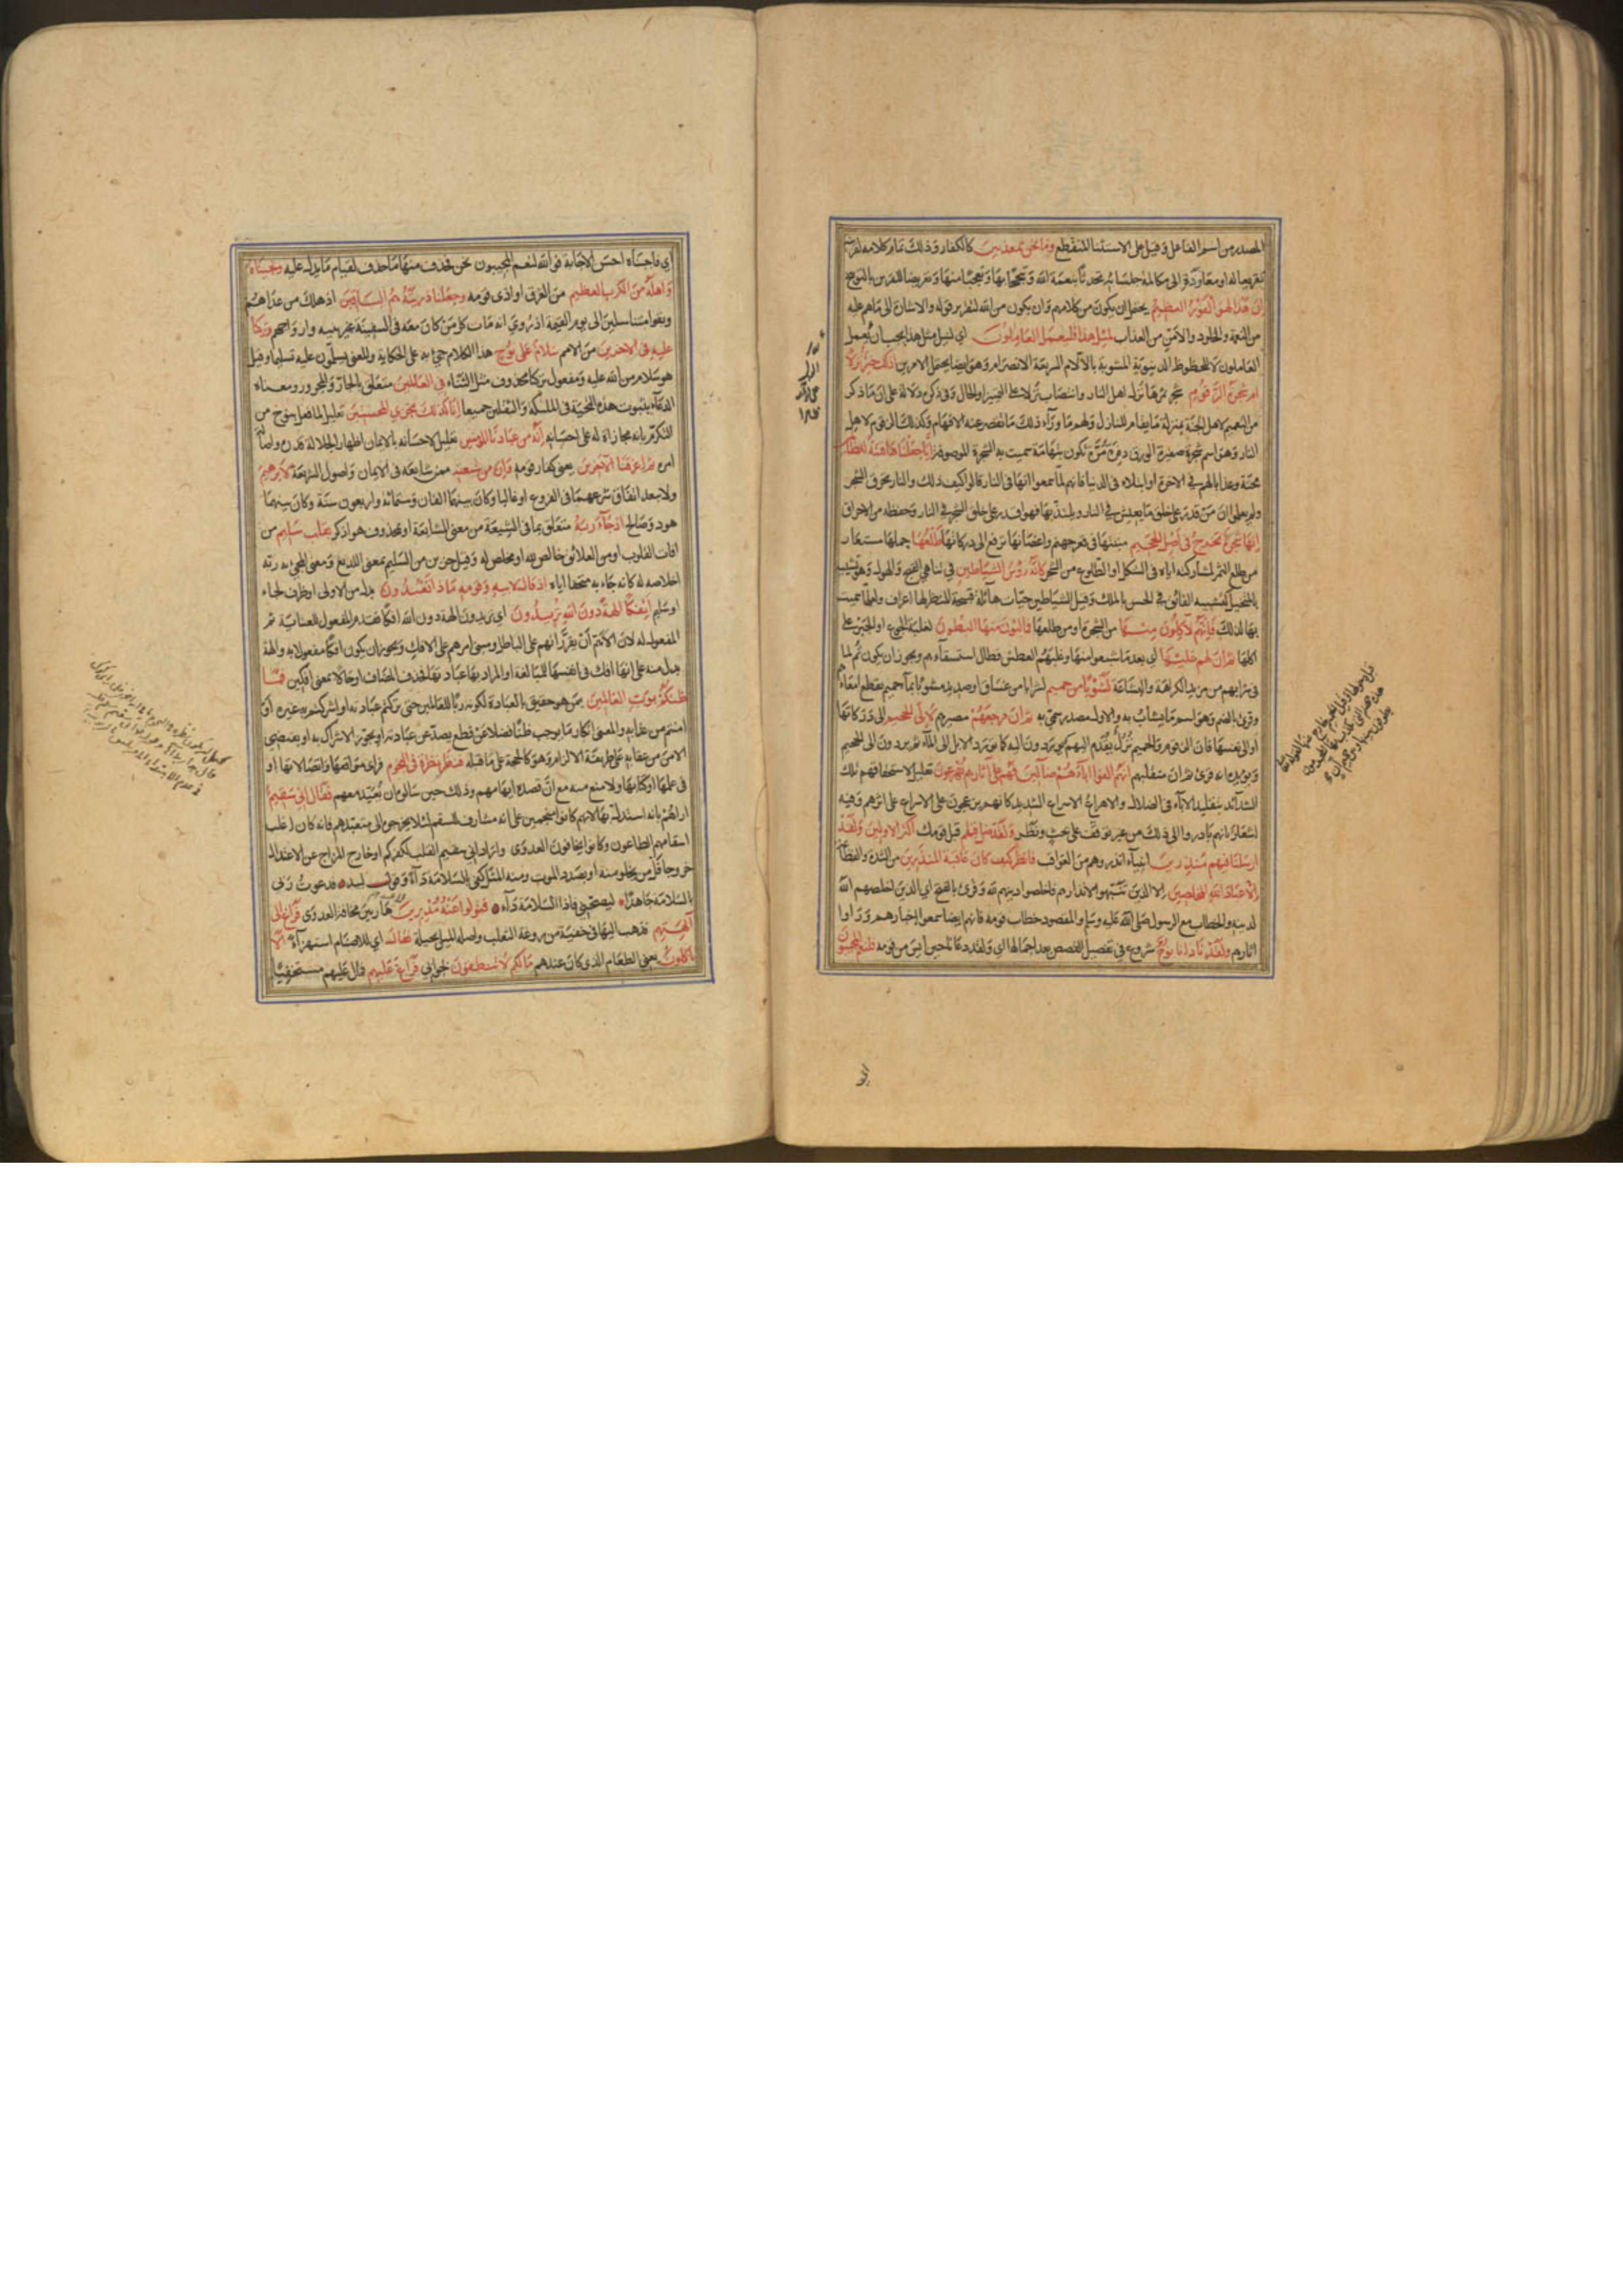 المصدر من اسم الفاعل وقيل على الاستثناء المنقطع وما نحن بمعذبين كالكفار وذلك تمام كلامه لقرينه
تقريعا له او معاودة الى مكالمة جلسائه تحدثا بنعمة الله وتبجحا بها وتعجبا منها وتعريضا للقرين بالتوبيخ
ان هذا لهو الفوز العظيم يحتمل ان يكون من كلامهم وان يكون من الله لتقرير قوله والاشارة الى ما هم عليه
من النعمة والخلود والامن من العذاب لمثل هذا فليعمل العاملون اي لنيل مثل هذا يجب ان يعمل
العاملون لا للحظوظ الدنيوية المشوبة بالآلام السريعة الانصرام وهو ايضا يحتمل الامرين اذلك خير نزلا
ام شجرة الزقوم شجرة ثمرها نزل اهل النار وانتصاب نزلا على التمييز او الحال وفي ذكره دلالة على ان ما ذكر
من النعيم لاهل الجنة بمنزلة ما يقام للنازل ولهم ما وراء ذلك ما تقصر عنه الافهام وكذلك الزقوم لاهل
النار وهو اسم شجرة صغيرة الورق دفرة مرة تكون بتهامة سميت به الشجرة الموصوفة انا جعلناها فتنة للظالمين
محنة وعذابا لهم في الآخرة او ابتلاء في الدنيا فانهم لما سمعوا انها في النار قالوا كيف ذلك والنار تحرق الشجر
ولم يعلموا ان من قدر على خلق ما يعيش في النار ويلتذ بها فهو اقدر على خلق الشجر في النار وحفظه من الاحراق
انها شجرة تخرج في اصل الجحيم منبتها في قعر جهنم واغصانها ترفع الى دركاتها طلعها حملها مستعار
من طلع التمر لمشاركته اياه في الشكل او الطلوع من الشجر كانه رؤس الشياطين في تناهي القبح والهول وهو تشبيه
بالمتخيل كتشبيه الفائق في الحسن بالملك وقيل الشياطين حيات هائلة قبيحة المنظر لها اعراف ولعلها سميت
بها لذلك فانهم لآكلون منها من الشجرة او من طلعها فمالئون منها البطون لغلبة الجوع او الجبر على
اكلها ثم ان لهم عليها اي بعد ما شبعوا منها وغلبهم العطش وطال استسقاءهم ويجوز ان يكون ثم لما
في شرابهم من مزيد الكراهة والبشاعة لشوبا من حميم لشرابا من غساق او صديد مشوبا بماء حميم يقطع امعاءهم
وقرئ بالضم وهو اسم ما يشاب به والاول مصدر سمي به ثم ان مرجعهم مصيرهم لالى الجحيم الى دركاتها
او الى نفسها فان الزقوم والحميم نزل يقدم اليهم قبل دخولها وقيل
ويؤيده انه قرئ ثم ان منقلبهم انهم الفوا آباءهم ضالين فهم على آثارهم يهرعون تعليل لاستحقاقهم تلك
الشدائد بتقليد الآباء في الضلال والاهراع الاسراع الشديد كانهم يزعجون على الاسراع على اثرهم وفيه
اشعار بانهم بادروا الى ذلك من غير توقف على بحث ونظر ولقد ضل قبلهم قبل قومك اكثر الاولين ولقد
ارسلنا فيهم منذرين انبياء انذروهم من العواقب فانظر كيف كان عاقبة المنذرين من الشدة والفظاعة
الا عباد الله المخلصين الا الذين تنبهوا لانذارهم فاخلصوا دينهم لله وقرئ بالفتح اي الذين اخلصهم الله
لدينه والخطاب مع الرسول صلى الله عليه وسلم والمقصود خطاب قومه فانهم ايضا سمعوا اخبارهم ورأوا
آثارهم ولقد نادانا نوح شروع في تفصيل القصص بعد اجمالها اي ولقد دعانا حين ايس من قومه فلنعم المجيبون
اي
اي فاجبناه احسن الاجابة فوالله لنعم المجيبون نحن فحذف منها ما حذف لقيام ما يدل عليه ونجيناه
واهله من الكرب العظيم من الغرق او اذى قومه وجعلنا ذريته هم الباقين اذ هلك من عداهم
وبقوا متناسلين الى يوم القيمة اذ روي انه مات كل من كان معه في السفينة غير بنيه وازواجهم وتركنا
عليه في الآخرين من الامم سلام على نوح هذا الكلام جئ به على الحكاية والمعنى يسلمون عليه تسليما وقيل
هو سلام من الله عليه ومفعول تركنا محذوف مثل الثناء في العالمين متعلق بالجار والمجرور ومعناه
الدعاء بثبوت هذه التحية في الملئكة والثقلين جميعا انا كذلك نجزي المحسنين تعليل لما فعل بنوح من
التكرمة بانه مجازاة له على احسانه انه من عبادنا المؤمنين تعليل لاحسانه بالايمان اظهارا لجلالة قدره واصالة
امره ثم اغرقنا الآخرين يعني كفار قومه وان من شيعته ممن شايعه في الايمان واصول الشريعة لابرهيم
ولا يبعد اتفاق شرعهما في الفروع او غالبا وكان بينهما الفان وستمائة واربعون سنة وكان بينهما
هود وصالح اذ جاء ربه متعلق بما في الشيعة من معنى المشايعة او بمحذوف هو اذكر بقلب سليم من
آفات القلوب او من العلائق خالص لله او مخلص له وقيل حزين من السليم بمعنى اللديغ ومعنى المجئ به ربه
اخلاصه له كانه جاء به متحفا اياه اذ قال لابيه وقومه ماذا تعبدون بدل من الاولى او ظرف لجاء
او سليم أئفكا آلهة دون الله تريدون اي تريدون آلهة دون الله افكا فقدم المفعول للعناية ثم
المفعول له لان الاهم ان يقرر انهم على الباطل ومبنى امرهم على الافك ويجوز ان يكون افكا مفعولا به وآلهة
بدل منه على انها افك في انفسها للمبالغة او المراد بها عبادتها فحذف المضاف او حالا بمعنى آفكين فما
ظنكم برب العالمين بمن هو حقيق بالعبادة لكونه ربا للعالمين حتى تركتم عبادته او اشركتم به غيره او
امنتم من عذابه والمعنى انكار ما يوجب ظنا فضلا عن قطع يصد عن عبادته او يجوز الاشراك به او يقتضي
الامن من عقابه على طريقة الالزام وهو كالحجة على ما قبله فنظر نظرة في النجوم فرأى مواقعها واتصالاتها او
في علمها او كتابها ولا منع منه مع ان قصده ايهامهم وذلك حين سألوه ان يعيد معهم فقال اني سقيم
اراهم بانه استدل بها لانهم كانوا منجمين على انه مشارف للسقم لئلا يخرجوه الى معبدهم فانه كان اغلب
اسقامهم الطاعون وكانوا يخافون العدوى او اراد اني سقيم القلب لكفركم او خارج المزاج عن الاعتدال
خروجا قل من يخلو منه او بصدد الموت ومنه المثل كفى بالسلامة داء وقول لبيد فدعوت ربي
بالسلامة جاهدا ليصحني فاذا السلامة داء فتولوا عنه مدبرين هاربين مخافة العدوى فراغ الى
آلهتهم فذهب اليها في خفية من روغة الثعلب واصله الميل بحيلة فقال اي للاصنام استهزاء الا
تأكلون يعني الطعام الذي كان عندهم ما لكم لا تنطقون بجوابي فراغ عليهم فمال عليهم مستخفيا